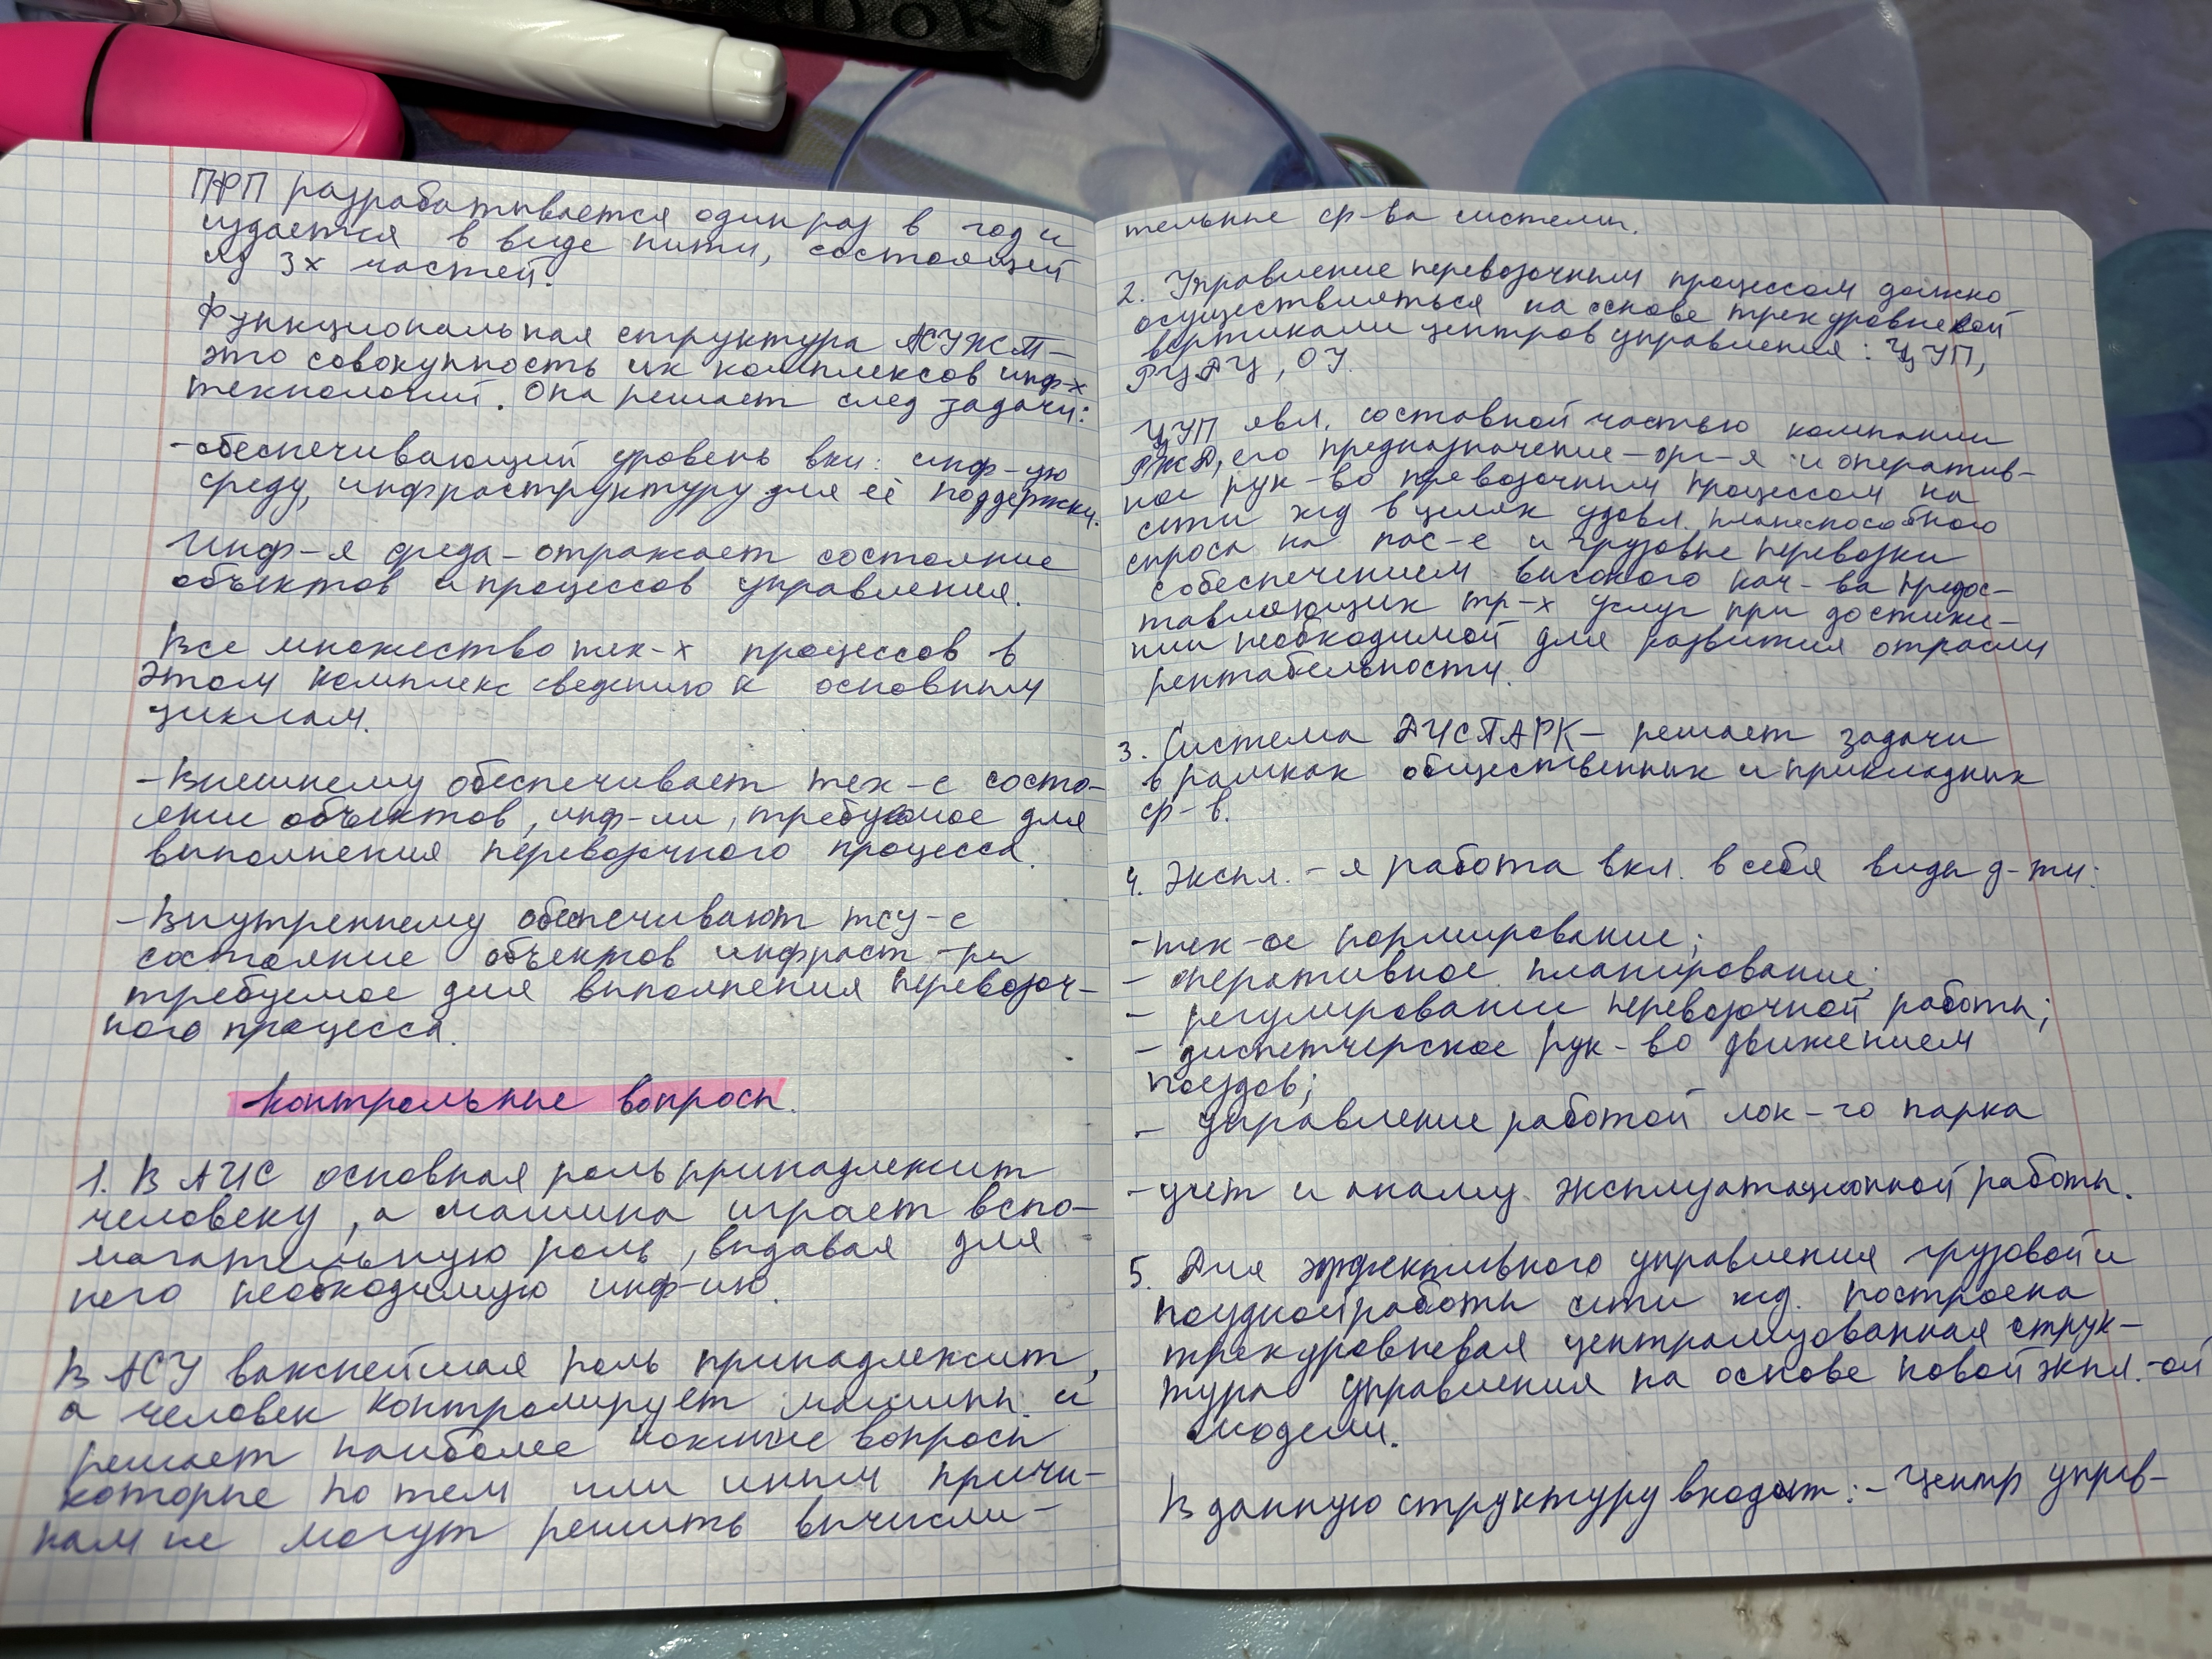 ПФП разрабатывается один раз в год и
издается в виде нити, состоящей
из 3х частей.
Функциональная структура АСУЖТ –
это совокупность их комплексов инф-х
технологий. Она решает след задачи:
- обеспечивающий уровень вкл: инф-ую
среду, инфраструктуру для её поддержки.
Инф-я среда - отражает состояние
объектов и процессов управления.
Все множество тех-х процессов в
этом комплекс сведению к основным
циклам.
- Внешнему обеспечивает тех-е состо-
яние объектов, инф-ли, требуемое для
выполнения перевозочного процесса.
- Внутреннему обеспечивают тсу-е
состояние объектов инфраст-ры
требуемое для выполнения перевозоч-
ного процесса.
Контрольные вопросы.
1. В АИС основная роль принадлежит
человеку, а машина играет вспо-
могательную роль, выдавая для
него необходимую инф-ию.
В АСУ важнейшая роль принадлежит,
а человек контролирует машины и
решает наиболее
вопросы
которые по тем или иным причи-
нам не могут решить вычисли-
DOK
тельные ср-ва системы.
2. Управление перевозочным процессом должно
осуществляться на основе трехуровневой
вертикали центров управления: ЦУП,
РЦДУ, ОУ.
ЦУП явл. составной частью компании
РЖД, его предназначение – орг-я и оператив-
ное рук-во перевозочным процессом на
сети жд в целях удовл. платеспособного
спроса на пас-е и грузовые перевозки
с обеспечением высокого кач-ва предос-
тавляющих тр-х услуг при достиже-
нии необходимой для развития отрасли
рентабельности.
3. Система ДИСПАРК – решает задачи
в рамках общественных и прикладных
ср-в.
4. Экспл.-я работа вкл. в себя виды д-ти:
- тех-ое нормирование;
- оперативное планирование;
- регулирование перевозочной работы;
- диспетчерское рук-во движением
поездов;
- управление работой лок-го парка
- учет и анализ эксплуатационной работы.
5. Для эффективного управления грузовой и
поездной работы сети жд. построена
трехуровневая централизованная струк-
тура управления на основе новой экпл.-ой
модели.
В данную структуру входят: - Центр управ-